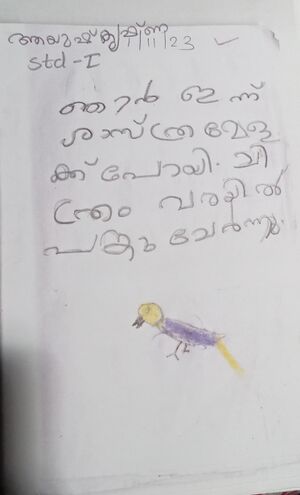 ആയുഷ്കൃഷ്ണ
1/11/23
std-I
ഞാൻ ഇന്ന്
ശാസ്ത്രമേള
ക്ക് പോയി. ചി
ത്രം വരയിൽ
പങ്കു ചേർന്നു.